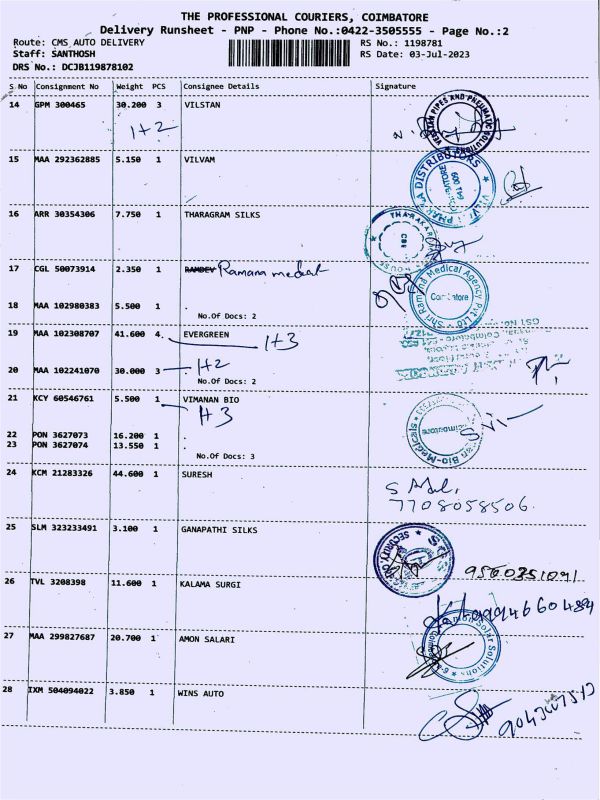 THE PROFESSIONAL COURIERS, COIMBATORE
Delivery Runsheet - PNP - Phone No.:0422-3505555 - Page No.:2
Route: CMS AUTO DELIVERY RS No.: 1198781
Staff: SANTHOSH RS Date: 03-Jul-2023
DRS No.: DCJB119878102
S No Consignment No Weight PCS Consignee Details Signature
14 GPM 300465 30.200 3 VILSTAN
1+2
VELSTAN PIPES AND PNEUMATIC SOLUTIONS
15 MAA 292362885 5.150 1 VILVAM
DISTRIBUTORS
641 009
16 ARR 30354306 7.750 1 THARAGRAM SILKS
CBE
17 CGL 50073914 2.350 1 RAMDEV Ramana medical
Medical Agency Pvt Ltd
Coimbatore
18 MAA 102980383 5.500 1 .
No.Of Docs: 2
19 MAA 102308707 41.600 4. EVERGREEN
1+3
20 MAA 102241070 30.000 3 1+2
No.Of Docs: 2
21 KCY 60546761 5.500 1 VIMANAN BIO
1+3
Bio-Medicals
Coimbatore
22 PON 3627073 16.200 1 .
23 PON 3627074 13.550 1 .
No.Of Docs: 3
24 KCM 21283326 44.600 1 SURESH
7708058506.
25 SLM 323233491 3.100 1 GANAPATHI SILKS
SECURITY
26 TVL 3208398 11.600 1 KALAMA SURGI
9994660484
27 MAA 299827687 20.700 1 AMON SALARI
Amon Solar Solutions
28 IXM 504094022 3.850 1 WINS AUTO